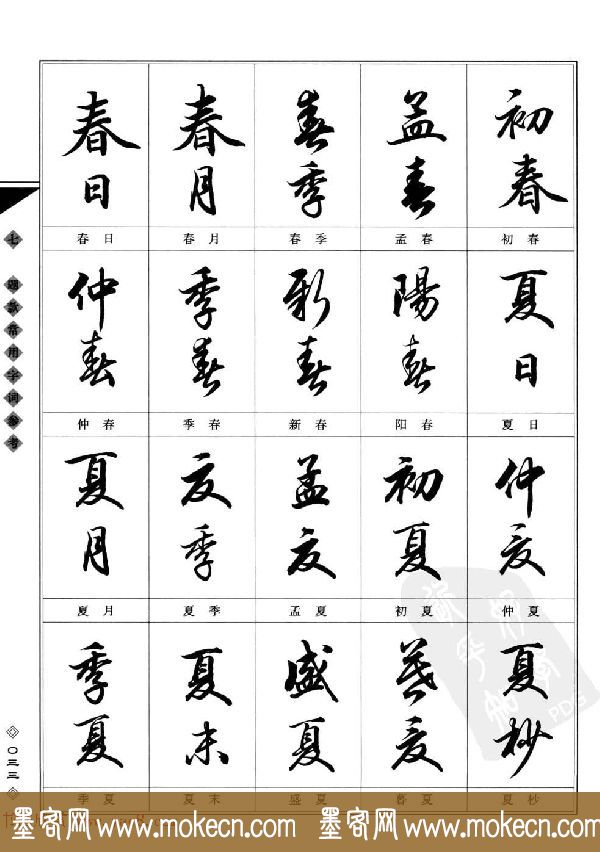 春日 春月 春季 孟春 初春
春日 春月 春季 孟春 初春
仲春 季春 新春 陽春 夏日
仲春 季春 新春 阳春 夏日
夏月 夏季 孟夏 初夏 仲夏
夏月 夏季 孟夏 初夏 仲夏
季夏 夏末 盛夏 暮夏 夏杪
季夏 夏末 盛夏 暮夏 夏杪
七 题款常用字词参考
〇三三
PDG
墨客网 www.mokecn.com 墨客网 www.mokecn.com